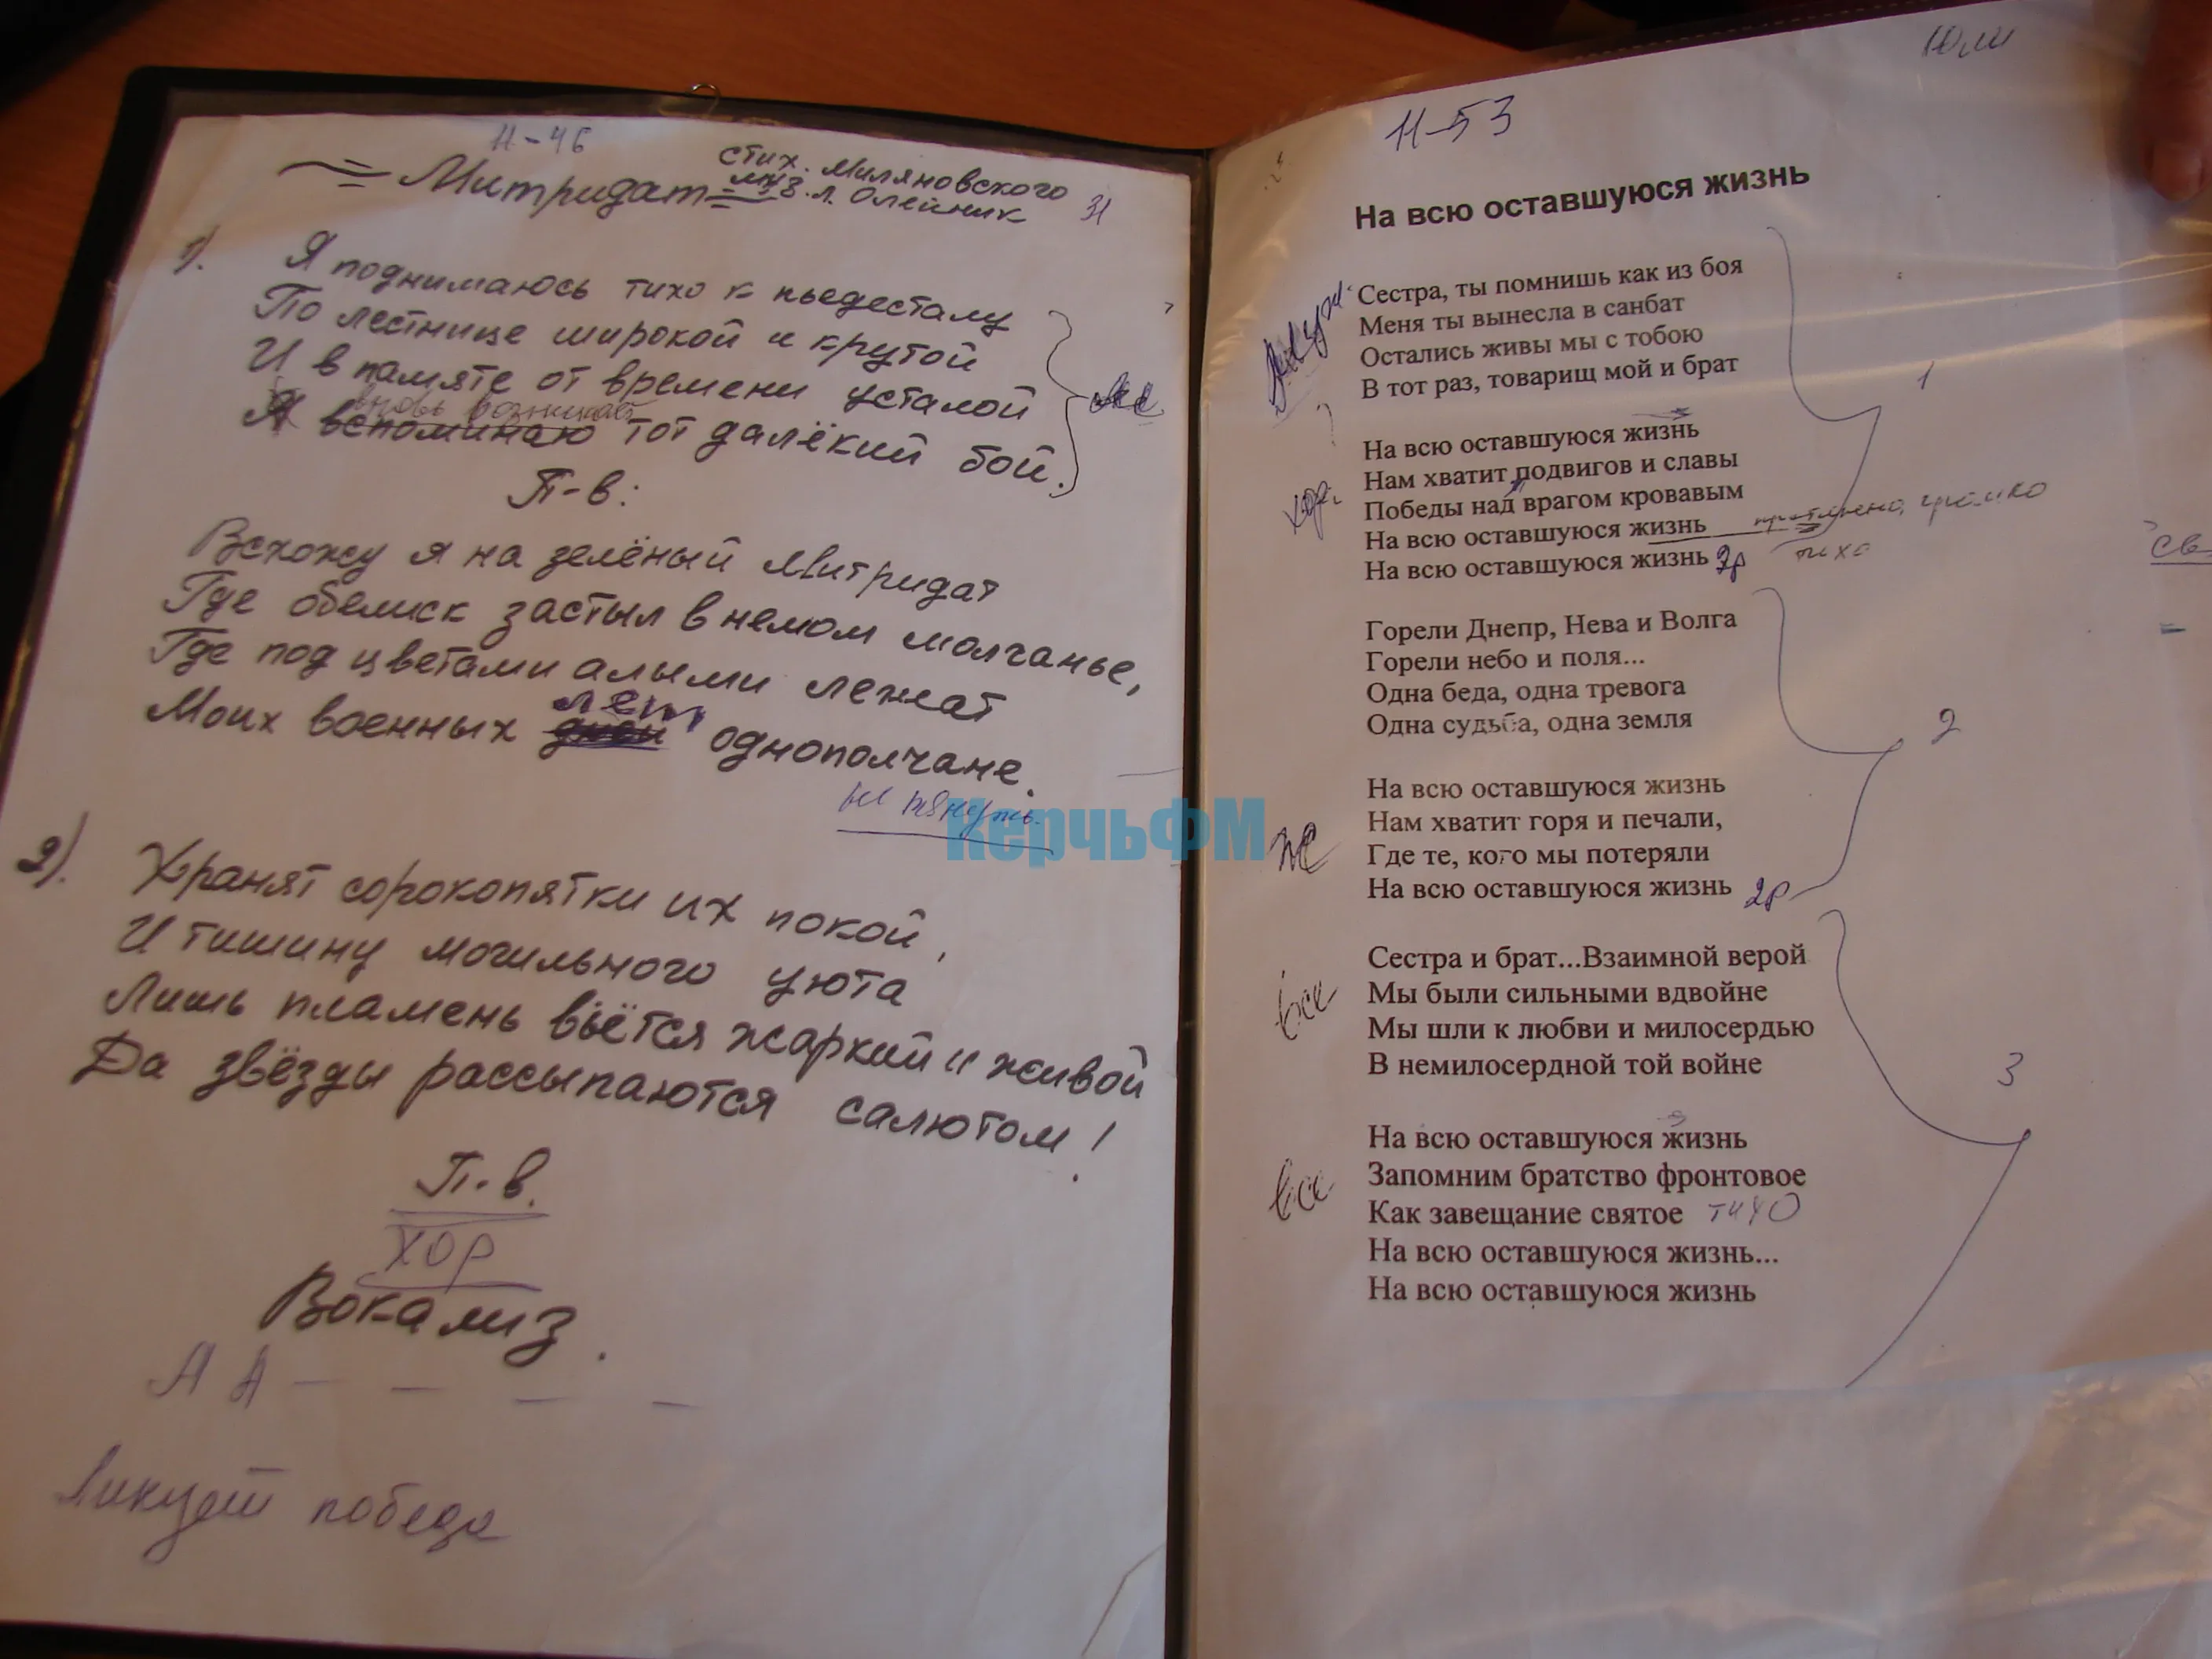 Н-46
Митридат
стих. Миляновского
муз. Л. Олейник
31
1).
Я поднимаюсь тихо к пьедесталу
По лестнице широкой и крутой
И в памяте от времени усталой
вновь возникает
Я вспоминаю тот далёкий бой.
П-в:
Всхожу я на зелёный Митридат
Где обелиск застыл в немом молчанье,
Где под цветами алыми лежат
лет
Моих военных дней однополчане.
не тянуть.
2).
Хранят сорокопятки их покой,
И тишину могильного уюта
Лишь пламень вьётся жаркий и живой
Да звёзды рассыпаются салютом!
П.в.
хор
Вокализ.
А А — — — —
Ликует победа
КерчьФМ
Юли
Н-53
На всю оставшуюся жизнь
Сестра, ты помнишь как из боя
Меня ты вынесла в санбат
Остались живы мы с тобою
В тот раз, товарищ мой и брат
1
На всю оставшуюся жизнь
Нам хватит подвигов и славы
Победы над врагом кровавым
На всю оставшуюся жизнь громко
На всю оставшуюся жизнь 2р тихо
Горели Днепр, Нева и Волга
Горели небо и поля...
Одна беда, одна тревога
Одна судьба, одна земля
2
На всю оставшуюся жизнь
Нам хватит горя и печали,
Где те, кого мы потеряли
На всю оставшуюся жизнь 2р
Сестра и брат...Взаимной верой
все Мы были сильными вдвойне
Мы шли к любви и милосердью
В немилосердной той войне
3
На всю оставшуюся жизнь
все Запомним братство фронтовое
Как завещание святое тихо
На всю оставшуюся жизнь...
На всю оставшуюся жизнь